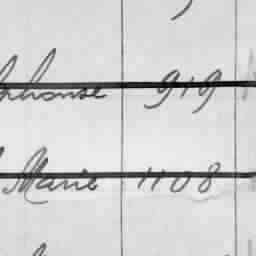 Alphonse 919
Marie 1108